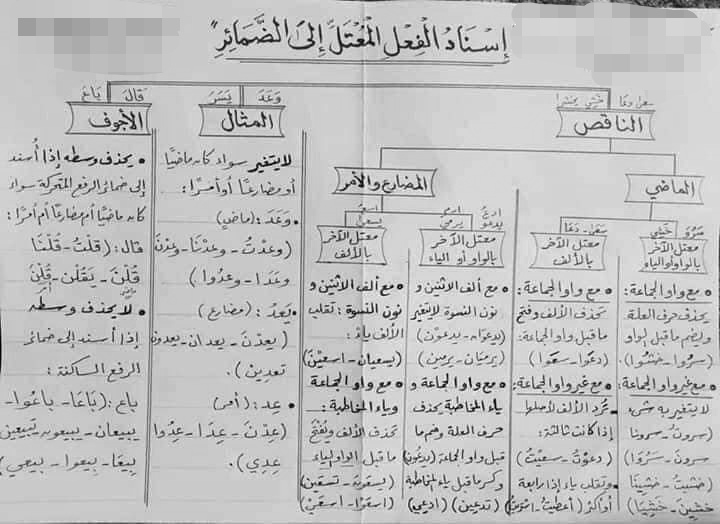 إسنادُ الفعلِ المُعتلِّ إلى الضَّمائرِ
قالَ باعَ
الأجوف
• يحذف وسطه إذا أُسند
إلى ضمائر الرفع المتحركة سواء
كان ماضيًا أم مضارعًا أم أمرًا:
قال: (قلتُ - قُلْنا
قُلنَ - يَقُلن - قُلْنَ
• لا يحذف وسطه
إذا أسند إلى ضمائر
الرفع الساكنة:
باع: (باعَا - باعُوا -
يبيعان - يبيعون - تبيعين
بِيعَا - بيعوا - بيعي)
وَعَدَ يَسَرَ
المثال
لا يتغير سواء كان ماضيًا
أو مضارعًا أو أمرًا:
• وَعَدَ: (ماضٍ)
(وعدْتُ - وعدْنا - وعدْنَ
وعدَا - وعدُوا)
• يَعدُ: (مضارع)
(يعدْنَ - يعدان - يعدون
تعدين).
• عِد: (أمر)
(عِدْنَ - عِدَا - عِدُوا
عِدِي).
الناقص
المضارع والأمر
يسعى
معتل الآخر
بالألف
• مع ألف الاثنين و
نون النسوة: تقلب
الألف ياءً:
(يسعيان - اسعَيْنَ)
• مع واو الجماعة
وياء المخاطبة:
تحذف الألف ويُفتح
ما قبل الواو والياء
(يسعَوْنَ - تسعَين)
(اسعَوْا - اسعَيْ)
ادعُ ارمِ
يدعو يرمي
معتل الآخر
بالواو أو الياء
• مع ألف الاثنين و
نون النسوة لا يتغير
(يدعوَان - يدعوْن)
(يرميَان - يرمين)
• مع واو الجماعة و
ياء المخاطبة يحذف
حرف العلة وضم ما
قبل واو الجماعة (يدعُون)
وكسر ما قبل ياء المخاطبة
(تدعين) (ادعي)
الماضي
سعى - دعا
معتل الآخر
بالألف
• مع واو الجماعة:
تحذف الألف وفتح
ما قبل واو الجماعة:
(دعَوا - سعَوا)
• مع غير واو الجماعة:
- تُرد الألف لأصلها
إذا كانت ثالثة:
(دعَوْتُ - سعيْتُ)
• وتقلب ياء إذا رابعة
أو أكثر (أعطيتُ -
سَرُوَ خَشِيَ
معتل الآخر
بالواو أو الياء
• مع واو الجماعة:
يحذف حرف العلة
ويضم ما قبل الواو
(سرُوا - خَشُوا)
• مع غير واو الجماعة:
لا يتغير به شيء
(سروتُ - سرونا
سرونَ - سَرُوَا)
(خشيتُ - خشينا
خشينَ - خَشِيَا)